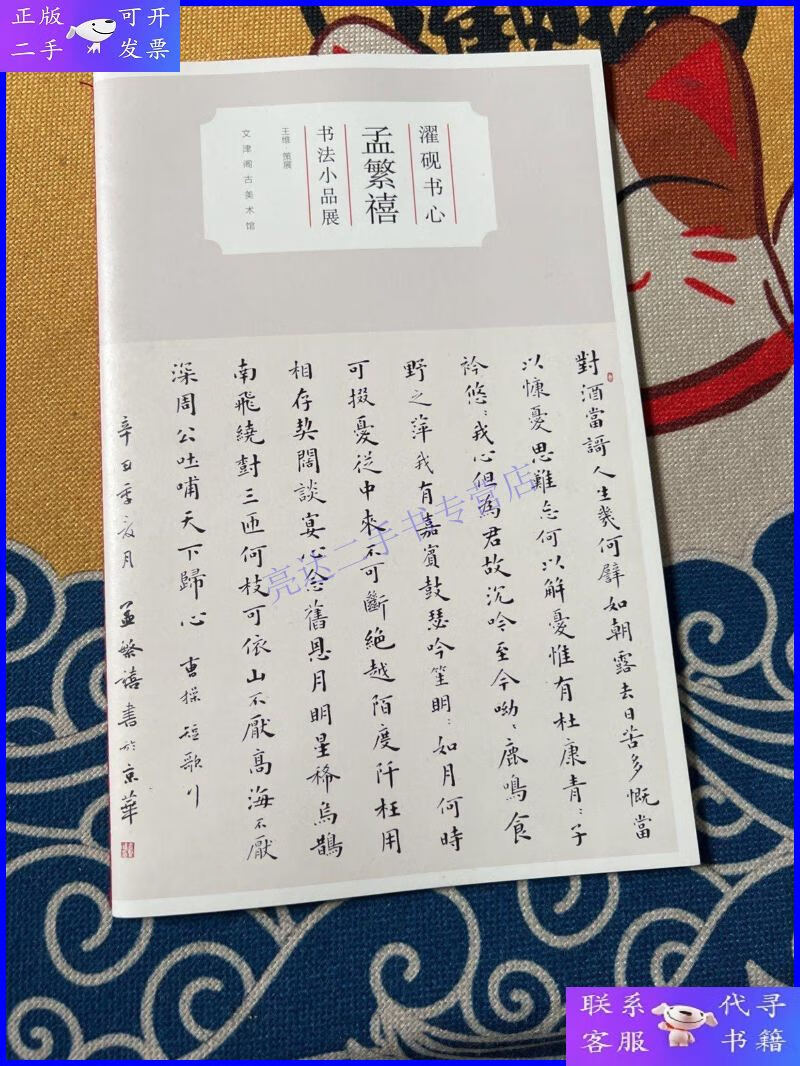 正版 可开
二手 发票
濯砚书心
孟繁禧
书法小品展
王维·策展
文津阁古美术馆
對酒當謌人生幾何譬如朝露去日苦多慨當
以慷憂思難忘何以解憂惟有杜康青:子
衿悠:我心但為君故沉吟至今呦:鹿鳴食
野之萍我有嘉賓鼓瑟吟笙明:如月何時
可掇憂從中來不可斷絕越陌度阡枉用
相存契闊談宴心念舊恩月明星稀烏鵲
南飛繞對三匝何枝可依山不厭高海不厭
深周公吐哺天下歸心 曹操短歌行
辛丑季夏月 孟繁禧書於京華
亮达二手书专营店
联系 代寻
客服 书籍